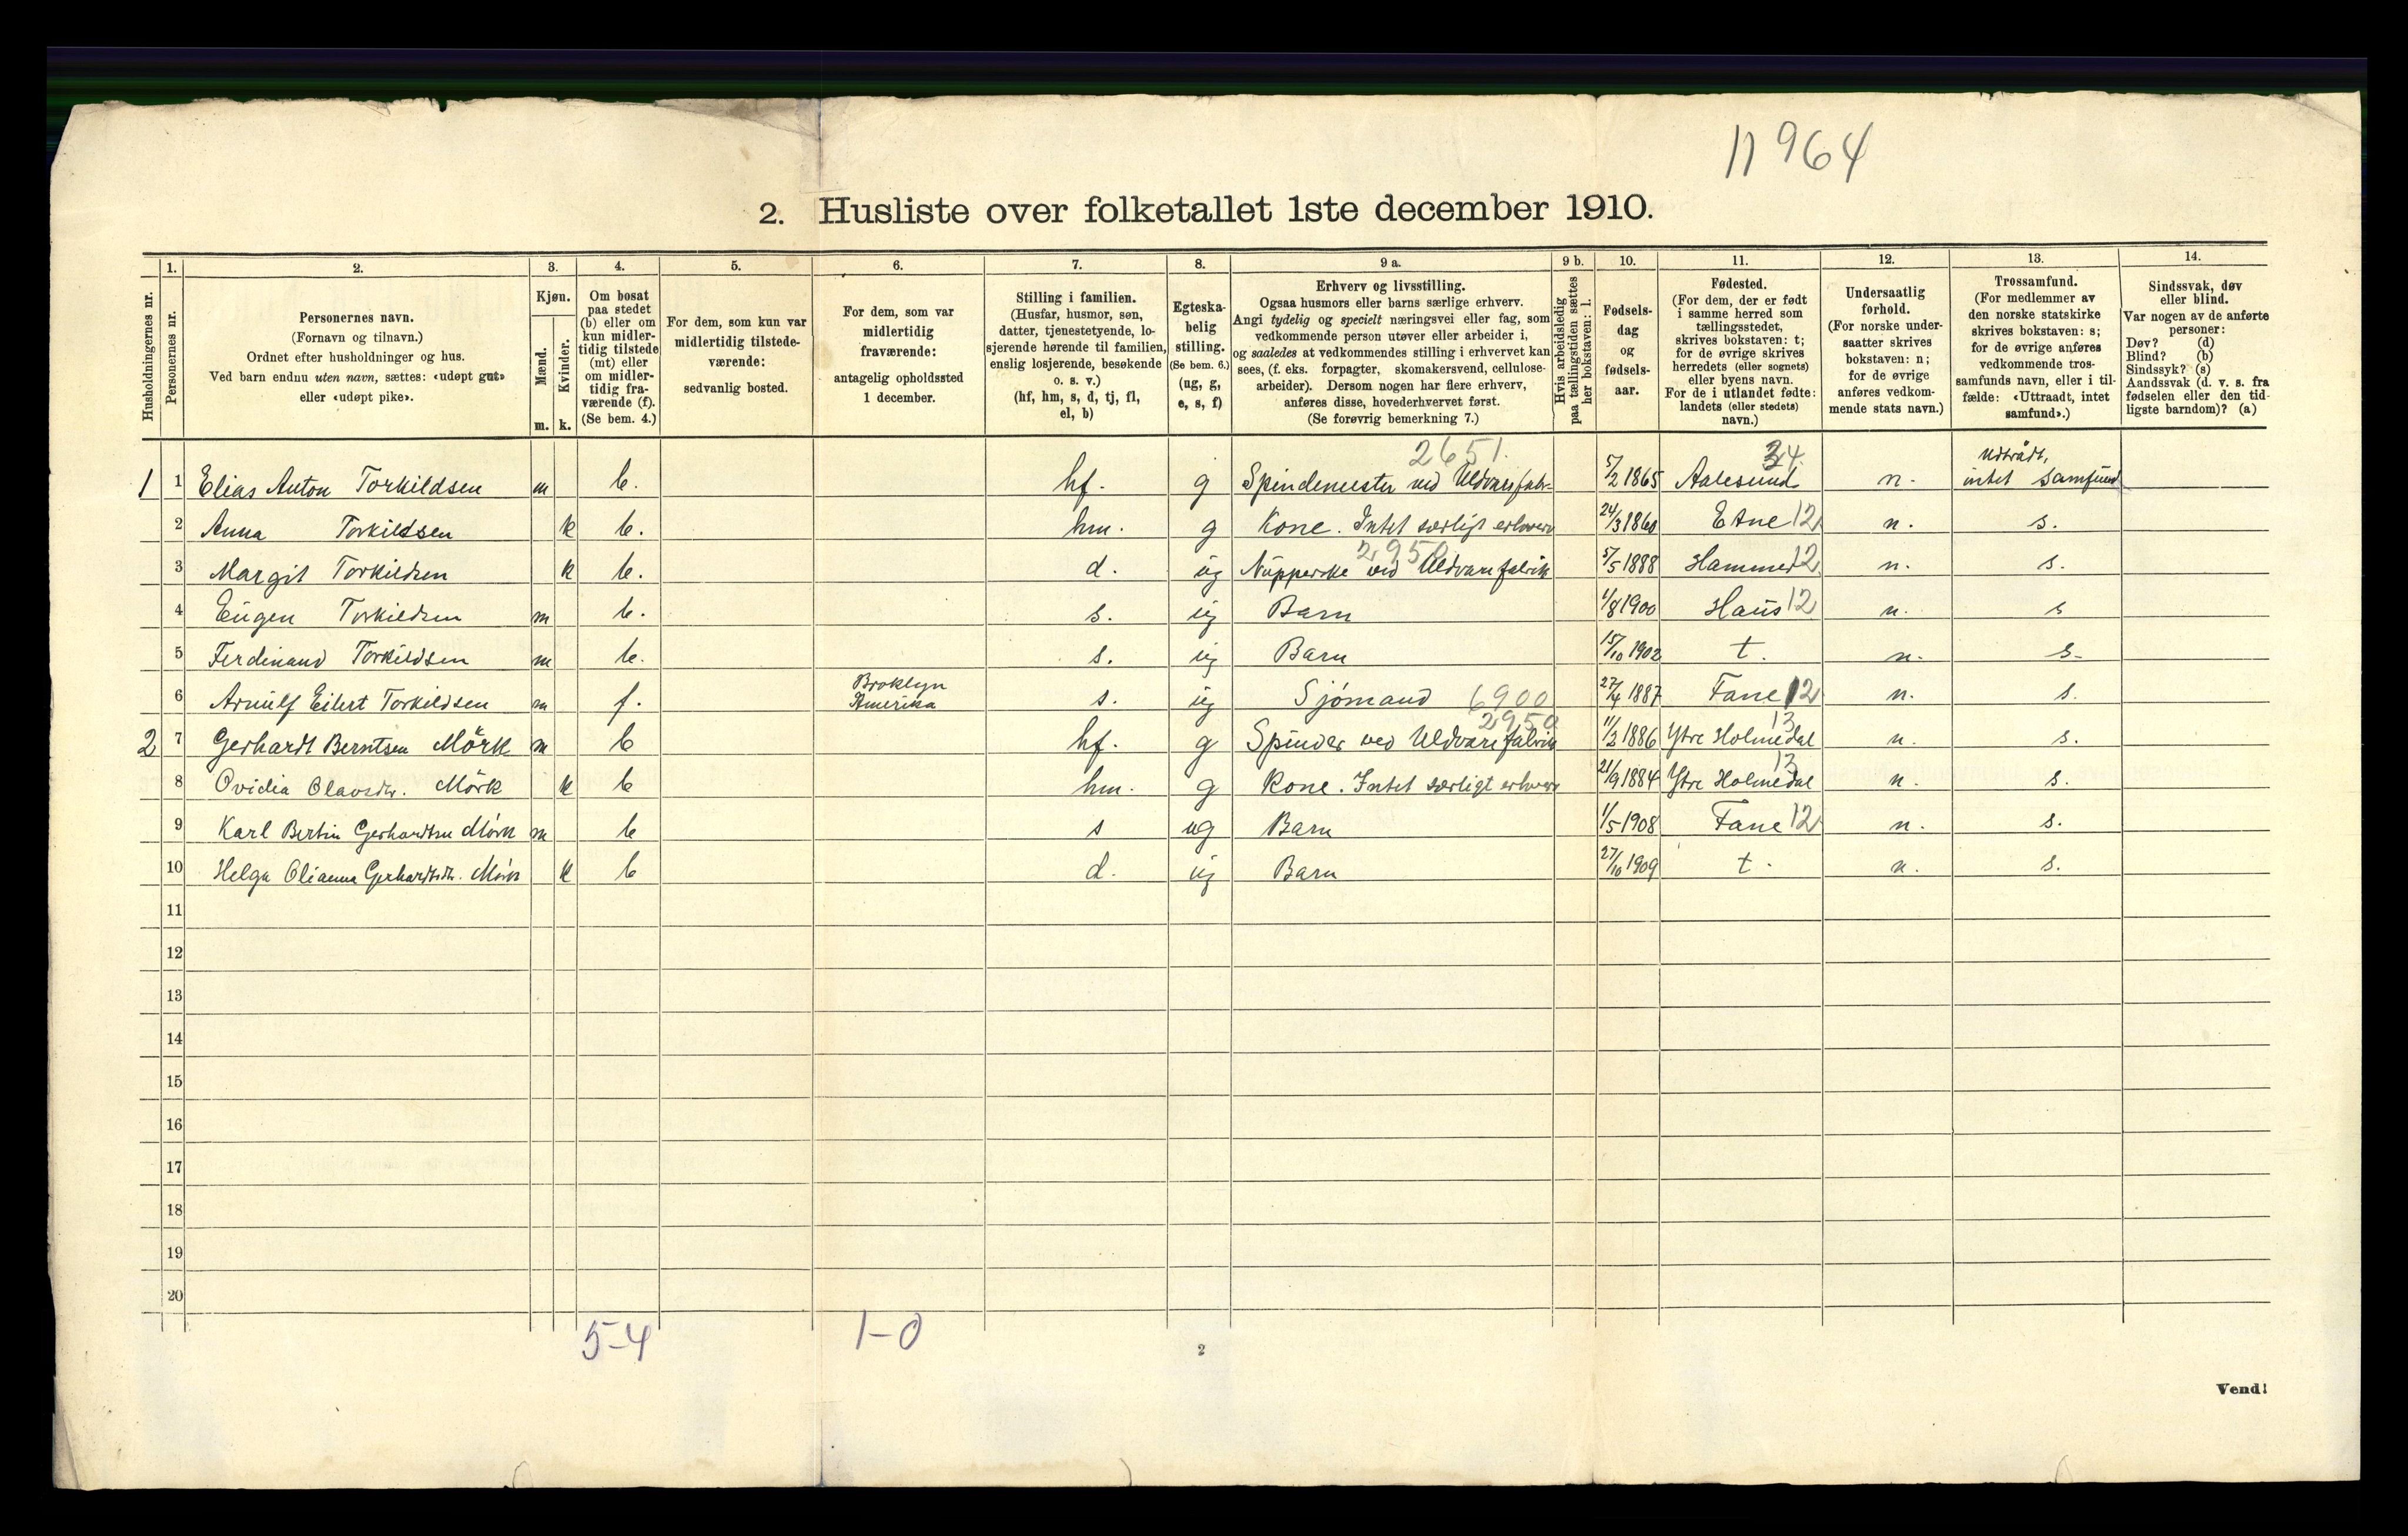 11964
2. Husliste over folketallet 1ste december 1910.
Husholdningernes nr.
1.
Personernes nr.
2.
Personernes navn.
(Fornavn og tilnavn.)
Ordnet efter husholdninger og hus.
Ved barn endnu uten navn, sættes: «udøpt gut»
eller «udøpt pike».
3.
Kjøn.
Mænd.
Kvinder.
m. k.
4.
Om bosat
paa stedet
(b) eller om
kun midler-
tidig tilstede
(mt) eller
om midler-
tidig fra-
værende (f).
(Se bem. 4.)
5.
For dem, som kun var
midlertidig tilstede-
værende:
sedvanlig bosted.
6.
For dem, som var
midlertidig
fraværende:
antagelig opholdssted
1 december.
7.
Stilling i familien.
(Husfar, husmor, søn,
datter, tjenestetyende, lo-
sjerende hørende til familien,
enslig losjerende, besøkende
o. s. v.)
(hf, hm, s, d, tj, fl,
el, b)
8.
Egteska-
belig
stilling.
(Se bem. 6.)
(ug, g,
e, s, f)
9 a.
Erhverv og livsstilling.
Ogsaa husmors eller barns særlige erhverv.
Angi tydelig og specielt næringsvei eller fag, som
vedkommende person utøver eller arbeider i,
og saaledes at vedkommendes stilling i erhvervet kan
sees, (f. eks. forpagter, skomakersvend, cellulose-
arbeider). Dersom nogen har flere erhverv,
anføres disse, hovederhvervet først.
(Se forøvrig bemerkning 7.)
9 b.
Hvis arbeidsledig
paa tællingstiden sættes
her bokstaven: l.
10.
Fødsels-
dag
og
fødsels-
aar.
11.
Fødested.
(For dem, der er født
i samme herred som
tællingsstedet,
skrives bokstaven: t;
for de øvrige skrives
herredets (eller sognets)
eller byens navn.
For de i utlandet fødte:
landets (eller stedets)
navn.)
12.
Undersaatlig
forhold.
(For norske under-
saatter skrives
bokstaven: n;
for de øvrige
anføres vedkom-
mende stats navn.)
13.
Trossamfund.
(For medlemmer av
den norske statskirke
skrives bokstaven: s;
for de øvrige anføres
vedkommende tros-
samfunds navn, eller i til-
fælde: «Uttraadt, intet
samfund».)
14.
Sindssvak, døv
eller blind.
Var nogen av de anførte
personer:
Døv? (d)
Blind? (b)
Sindssyk? (s)
Aandssvak (d. v. s. fra
fødselen eller den tid-
ligste barndom)? (a)
2651. 34. Udtrådt,
1 1 Elias Anton Torkildsen m b. hf. g Spindemester ved Uldvarefabr. 5/2 1865 Aalesund n. intet samfund
2 Anna Torkildsen k b. hm. g Kone. Intet særligt erhverv 24/3 1860 Etne 12 n. s.
2950
3 Margit Torkildsen k b. d. ug Nupperske ved Uldvarefabrik 5/5 1888 Hammer 12 n. s.
4 Eugen Torkildsen m b. s. ug Barn 1/8 1900 Haus 12 n. s
5 Ferdinand Torkildsen m b. s. ug Barn 15/10 1902 t. n. s.
Broklyn
6 Arnulf Eilert Torkildsen m f. Amerika s. ug Sjømand 6900 27/4 1887 Fane 12 n. s.
2950 13
2 7 Gerhardt Berntsen Mörk m b hf. g Spinder ved Uldvarefabrik 11/2 1886 Ytre Holmedal n. s.
13
8 Ovidia Olavsdtr. Mörk k b hm. g Kone. Intet særligt erhverv 21/9 1884 Ytre Holmedal n. s.
9 Karl Bertin Gerhardtsen Mörk m b s ug Barn 1/5 1908 Fane 12 n. s.
10 Helga Olianna Gerhardtsdtr. Mörk k b d. ug Barn 27/10 1909 t. n. s.
11
12
13
14
15
16
17
18
19
20
5-4 1-0
2
Vend!